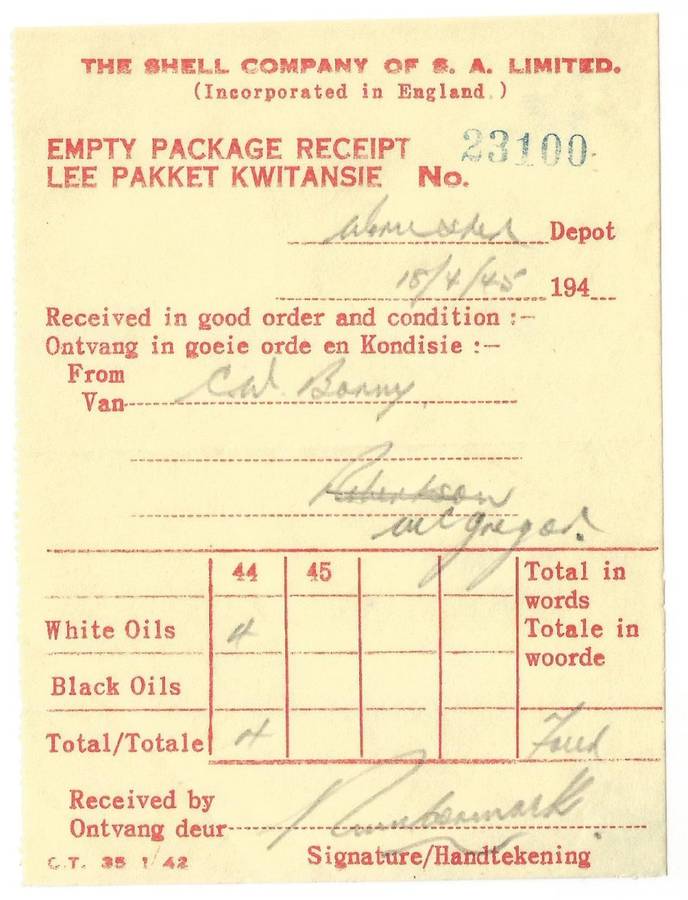 THE SHELL COMPANY OF S. A. LIMITED.
(Incorporated in England.)
EMPTY PACKAGE RECEIPT
LEE PAKKET KWITANSIE No. 23100
Depot
18/4/45 194
Received in good order and condition :–
Ontvang in goeie orde en Kondisie :–
From
Van C.W. Bonny
Robertson
McGregor.
44 45 Total in
words
White Oils 4 Totale in
woorde
Black Oils
Total/Totale 4 Four
Received by
Ontvang deur
C.T. 35 1/42 Signature/Handtekening